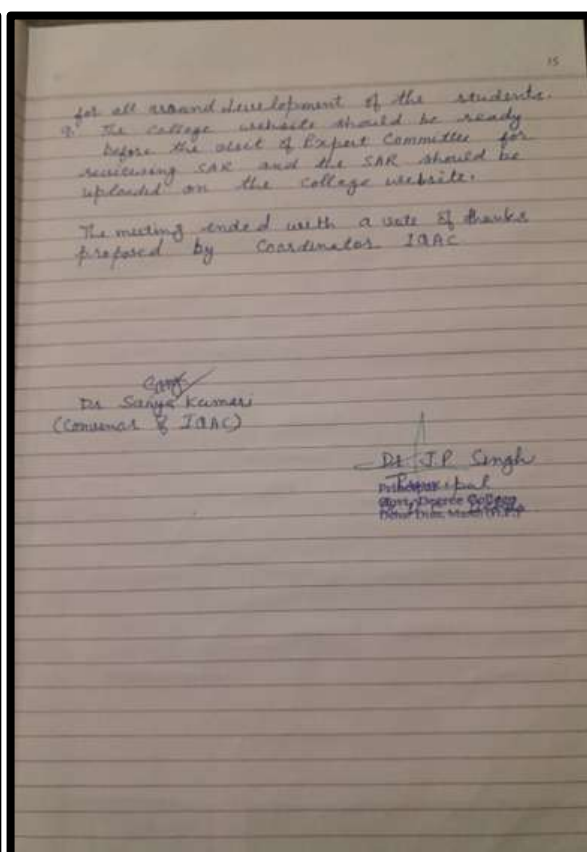 15
for all around development of the students.
9. The College website should be ready
before the visit of Expert Committee for
reviewing SAR and the SAR should be
uploaded on the College website.
The meeting ended with a vote of thanks
proposed by Coordinator IQAC
Dr Sanya Kumari
(Convenor of IQAC)
Dr J.P. Singh
Principal
Govt. Degree College